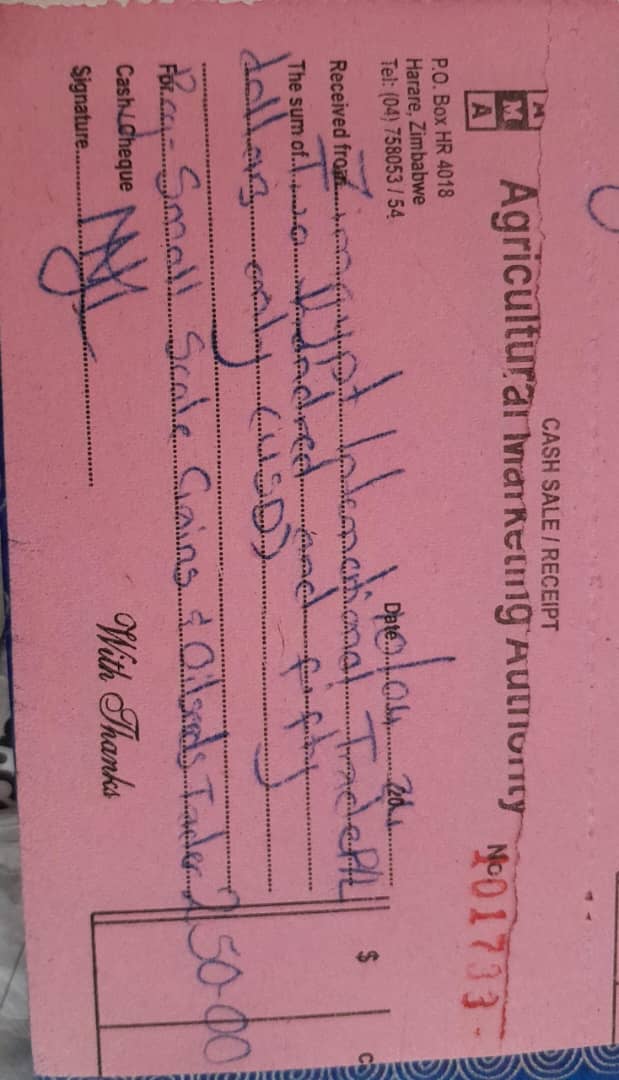 CASH SALE / RECEIPT
A
M
A
Agricultural Marketing Authority
No 101733
P.O. Box HR 4018
Harare, Zimbabwe
Tel: (04) 758053 / 54
Date 10/04
Received from Zimgypt International Trade P/L
The sum of Two Hundred and fifty
dollars only (USD)
For Reg - Small Scale Grains & Oilseeds Trader
$ C
250-00
Cash/Cheque
With Thanks
Signature